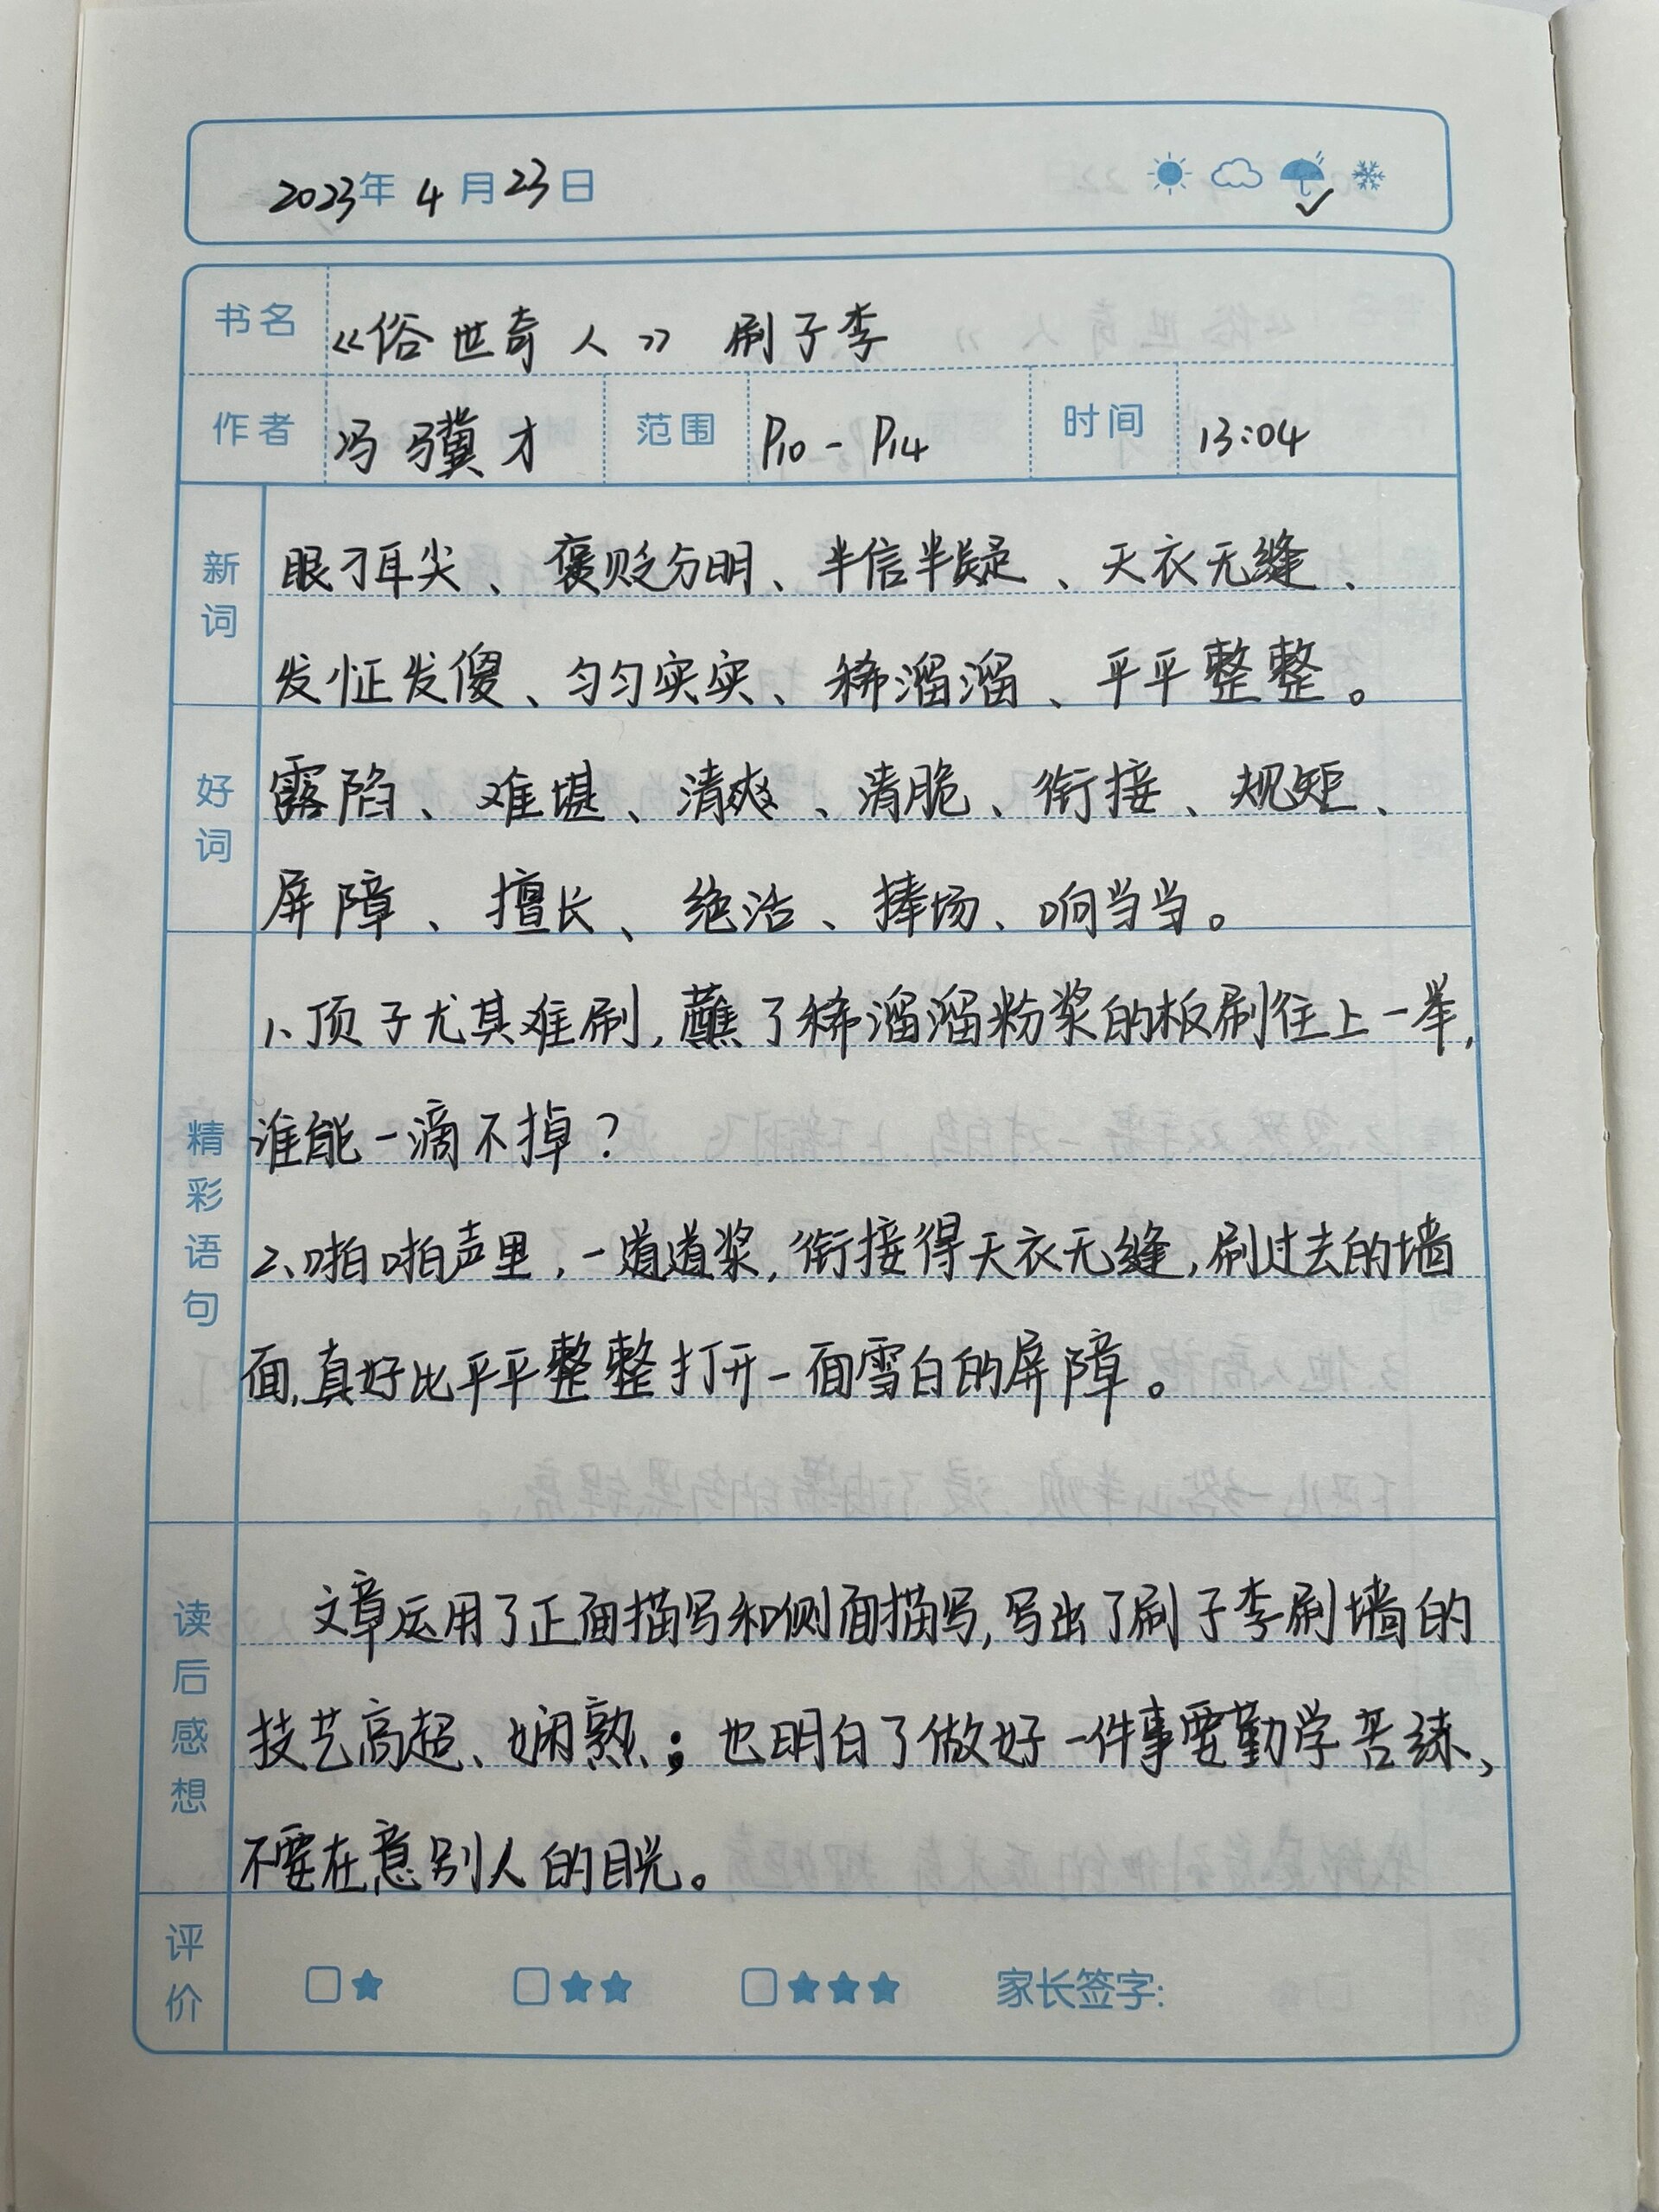 2023年 4月23日
书名 《俗世奇人》 刷子李
作者 冯骥才 范围 P10-P14 时间 13:04
新词 眼刁耳尖、褒贬分明、半信半疑、天衣无缝、
发怔发傻、匀匀实实、稀溜溜、平平整整。
好词 露陷、难堪、清爽、清脆、衔接、规矩、
屏障、擅长、绝活、捧场、响当当。
精彩语句 1、顶子尤其难刷,蘸了稀溜溜粉浆的板刷往上一举,
谁能一滴不掉?
2、啪啪声里,一道道浆,衔接得天衣无缝,刷过去的墙
面,真好比平平整整打开一面雪白的屏障。
读后感想 文章运用了正面描写和侧面描写,写出了刷子李刷墙的
技艺高超、娴熟;也明白了做好一件事要勤学苦练、
不要在意别人的目光。
评价 □★ □★★ □★★★ 家长签字: